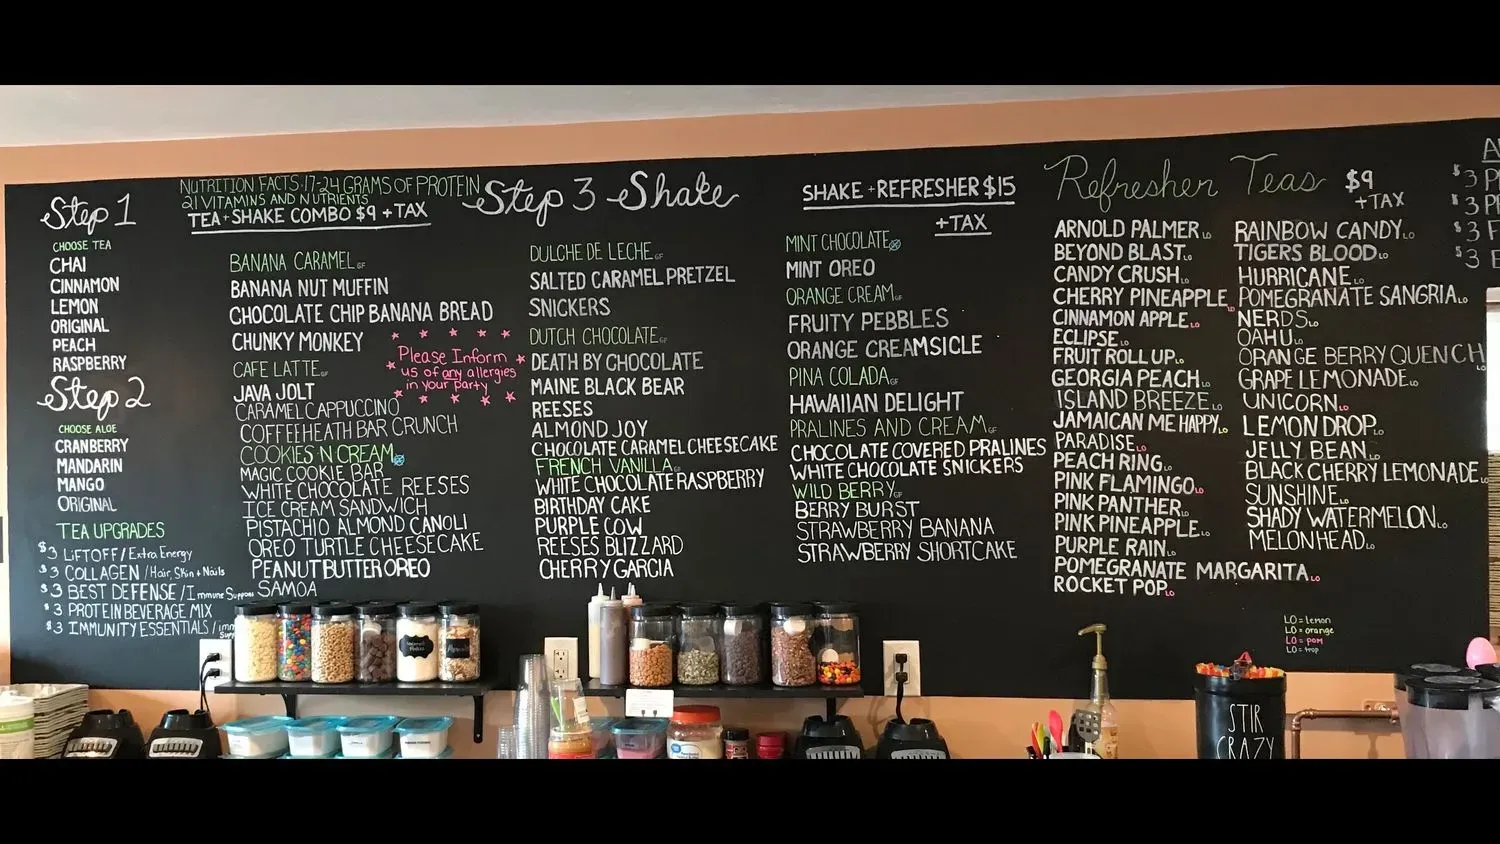 Step 1
CHOOSE TEA
CHAI
CINNAMON
LEMON
ORIGINAL
PEACH
RASPBERRY
Step 2
CHOOSE ALOE
CRANBERRY
MANDARIN
MANGO
ORIGINAL
TEA UPGRADES
$3 LIFTOFF / Extra Energy
$3 COLLAGEN / Hair, Skin + Nails
$3 BEST DEFENSE / Immune Support
$3 PROTEIN BEVERAGE MIX
$3 IMMUNITY ESSENTIALS /
NUTRITION FACTS: 17-24 GRAMS OF PROTEIN
21 VITAMINS AND NUTRIENTS
TEA + SHAKE COMBO $9 + TAX
Step 3 Shake
BANANA CARAMEL GF
BANANA NUT MUFFIN
CHOCOLATE CHIP BANANA BREAD
CHUNKY MONKEY
CAFE LATTE GF
JAVA JOLT
CARAMEL CAPPUCCINO
COFFEE HEATH BAR CRUNCH
COOKIES N CREAM
MAGIC COOKIE BAR
WHITE CHOCOLATE REESES
ICE CREAM SANDWICH
PISTACHIO ALMOND CANOLI
OREO TURTLE CHEESECAKE
PEANUT BUTTER OREO
SAMOA
Please Inform
us of any allergies
in your party
DULCHE DE LECHE GF
SALTED CARAMEL PRETZEL
SNICKERS
DUTCH CHOCOLATE GF
DEATH BY CHOCOLATE
MAINE BLACK BEAR
REESES
ALMOND JOY
CHOCOLATE CARAMEL CHEESECAKE
FRENCH VANILLA GF
WHITE CHOCOLATE RASPBERRY
BIRTHDAY CAKE
PURPLE COW
REESES BLIZZARD
CHERRY GARCIA
SHAKE + REFRESHER $15
+ TAX
MINT CHOCOLATE
MINT OREO
ORANGE CREAM GF
FRUITY PEBBLES
ORANGE CREAMSICLE
PINA COLADA GF
HAWAIIAN DELIGHT
PRALINES AND CREAM GF
CHOCOLATE COVERED PRALINES
WHITE CHOCOLATE SNICKERS
WILD BERRY GF
BERRY BURST
STRAWBERRY BANANA
STRAWBERRY SHORTCAKE
Refresher Teas $9
+ TAX
ARNOLD PALMER LO
BEYOND BLAST LO
CANDY CRUSH LO
CHERRY PINEAPPLE LO
CINNAMON APPLE LO
ECLIPSE LO
FRUIT ROLL UP LO
GEORGIA PEACH LO
ISLAND BREEZE LO
JAMAICAN ME HAPPY LO
PARADISE LO
PEACH RING LO
PINK FLAMINGO LO
PINK PANTHER LO
PINK PINEAPPLE LO
PURPLE RAIN LO
POMEGRANATE MARGARITA LO
ROCKET POP LO
RAINBOW CANDY LO
TIGERS BLOOD LO
HURRICANE LO
POMEGRANATE SANGRIA LO
NERDS LO
OAHU LO
ORANGE BERRY QUENCH LO
GRAPE LEMONADE LO
UNICORN LO
LEMON DROP LO
JELLY BEAN LO
BLACK CHERRY LEMONADE LO
SUNSHINE LO
SHADY WATERMELON LO
MELONHEAD LO
LO = lemon
LO = orange
LO = pom
LO = trop
$3
$3
$3
$3
STIR
CRAZY